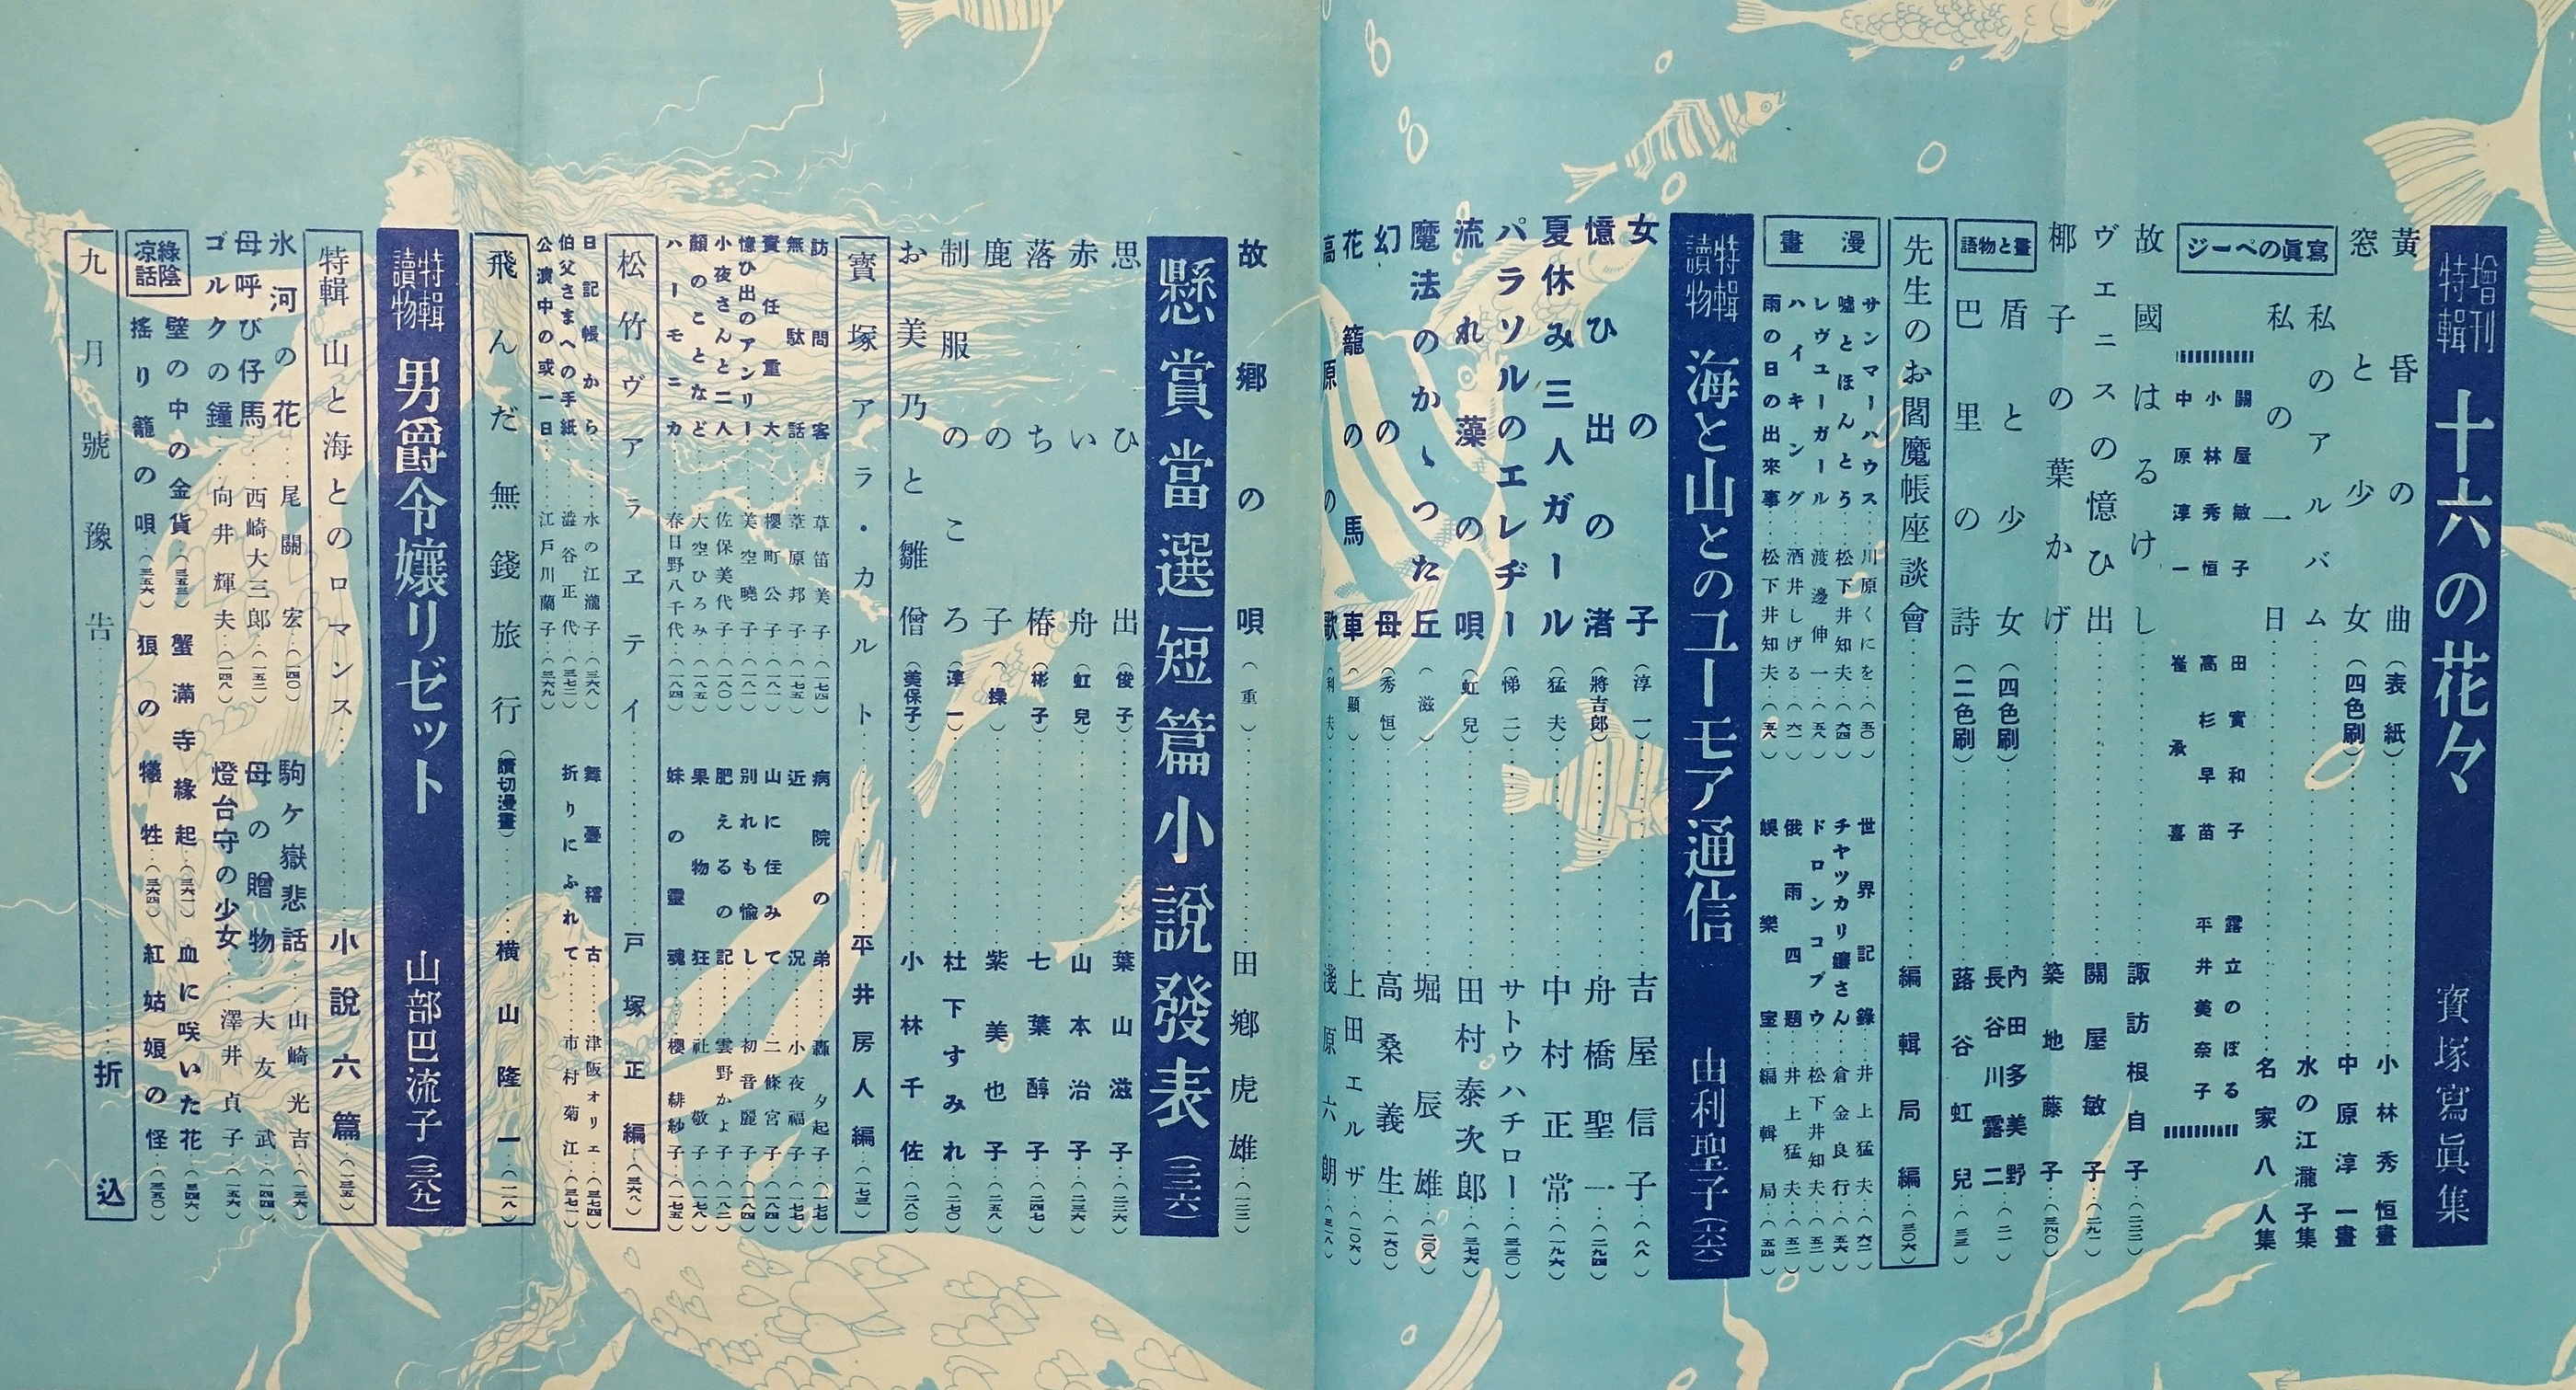 增刊特輯 十六の花々 寶塚寫眞集
黃昏の曲(表紙)……小林秀恒畫
窓と少女(四色刷)……中原淳一畫
私のアルバム……水の江瀧子集
私の一日……名家八人集
寫眞のページ
關屋敏子 田實和子 露立のぼる
小林秀恒 高杉早苗 平井美奈子
中原淳一 崔承喜
故國はるけし……諏訪根自子(二二二)
ヴェニスの憶ひ出……關屋敏子(二九一)
椰子の葉かげ……築地藤子(三四〇)
畫と物語
盾と少女(四色刷)……內田多美野 長谷川露二(二一)
巴里の詩(二色刷)……蕗谷虹兒(三三)
先生のお閻魔帳座談會……編輯局編(三〇六)
漫畫
サンマーハウス……川原くにを(五〇) 世界記錄……井上猛夫(六二)
噓とほんとう……松下井知夫(六四) チヤツカリ孃さん……倉金良行(五六)
レヴユーガール……渡邊伸一(五八) ドロンコブウ……松下井知夫(五二)
ハイキング……酒井しげる(六一) 俄雨四題……井上猛夫(五二)
雨の日の出來事……松下井知夫(五八) 娛樂室……編輯局(五四)
特輯讀物 海と山とのユーモア通信 由利聖子(六六)
女の子(淳一)……吉屋信子(八八)
憶ひ出の渚(將吉郎)……舟橋聖一(二九四)
夏休み三人ガール(猛夫)……中村正常(一九六)
パラソルのエレヂー(悌二)……サトウハチロー(三三〇)
流れ藻の唄(虹兒)……田村泰次郎(三七六)
魔法のかゝつた丘(滋)……堀辰雄(二〇八)
幻の母(秀恒)……高桑義生(一六〇)
花籠の馬車(顯)……上田エルザ(一〇六)
高原の歌(利夫)……淺原六朗(三一八)
故鄉の唄(重)……田鄕虎雄(一二二)
懸賞當選短篇小說發表(二三六)
思ひ出(俊子)……葉山滋子(二三六)
赤い舟(虹兒)……山本治子(二三六)
落ち椿(彬子)……七葉醇子(二四七)
鹿の子(操)……紫美也子(二五八)
制服のころ(淳一)……杜下すみれ(二七〇)
お美乃と雛僧(美保子)……小林千佐(二八〇)
寶塚アラ・カルト……平井房人編(一七三)
訪問客……草笛美子(一七四) 病院の弟……轟夕起子(一七七)
無駄話……葦原邦子(一七五) 近況……小夜福子(一七七)
責任重大……櫻町公子(一八一) 山に住みて……二條宮子(一八四)
憶ひ出のアンリー……美空曉子(一八一) 別れも愉し……初音麗子(一八四)
小夜さんと二人……佐保美代子(一八〇) 肥えるの記……雲野かよ子(一八二)
顏のことなど……大空ひろみ(一八五) 果物狂……社敬子(一七八)
ハーモニカ……春日野八千代(一八四) 妹の靈魂……櫻緋紗子(一七五)
松竹ヴアラヱテイ……戸塚正編(三六八)
日記帳から……水の江瀧子(三六八) 舞臺稽古……津阪オリエ(三七四)
伯父さまへの手紙……澁谷正代(三七二) 折りにふれて……市村菊江(三七一)
公演中の或一日……江戸川蘭子(三六九)
飛んだ無錢旅行(讀切漫畫)……横山隆一(一一八)
特輯讀物 男爵令孃リゼット 山部巴流子(三八九)
特輯 山と海とのロマンス……小說六篇(一三五)
氷河の花……尾關宏(一四〇) 駒ケ嶽悲話……山崎光吉(一三六)
母呼び仔馬……西崎大三郎(一五二) 母の贈物……大友武(一四四)
ゴルクの鐘……向井輝夫(一四八) 燈台守の少女……澤井貞子(一五六)
綠陰凉話
壁の中の金貨(三五三) 蟹滿寺緣起(三六一) 血に咲いた花(三四六)
搖り籠の唄(三五六) 狼の犧牲(三六四) 紅姑娘の怪(三五〇)
九月號豫告……折込